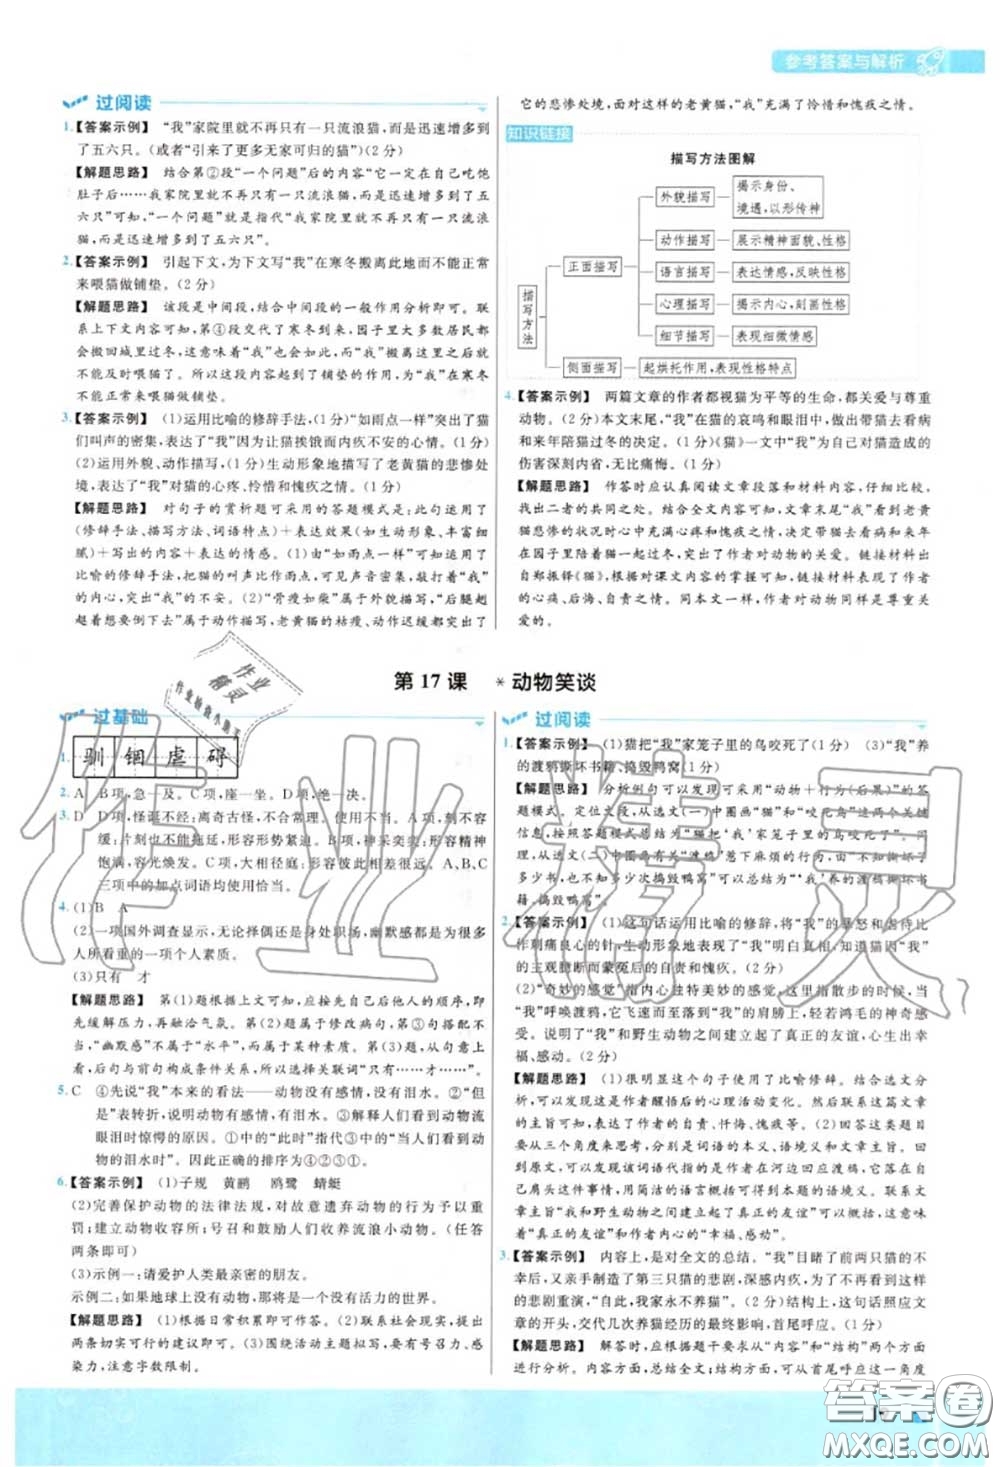 参考答案与解析
过阅读
1.【答案示例】 “我”家院里就不再只有一只流浪猫,而是迅速增多到
了五六只。(或者“引来了更多无家可归的猫”)(2分)
【解题思路】 结合第②段“一个问题”后的内容“它一定在自己吃饱
肚子后……我家院里就不再只有一只流浪猫,而是迅速增多到了五
六只”可知,“一个问题”就是指代“我家院里就不再只有一只流浪
猫,而是迅速增多到了五六只”。
2.【答案示例】 引起下文,为下文写“我”在寒冬搬离此地而不能正常
来喂猫做铺垫。(2分)
【解题思路】 该段是中间段,结合中间段的一般作用分析即可。联
系上下文内容可知,第④段交代了寒冬到来,园子里大多数居民都
会搬回城里过冬,这意味着“我”也会搬离这里,“我”搬离就意味着
不能及时喂猫了。所以这段内容起到了铺垫的作用,为“我”在寒冬
不能正常来喂猫做铺垫。
3.【答案示例】 (1)运用比喻的修辞手法,(1分)“如雨点一样”突出了猫
们叫声的密集,表达了“我”因为让猫挨饿而内疚不安的心情。(1分)
(2)运用外貌、动作描写,(1分)生动形象地描写了老黄猫的悲惨处
境,表达了“我”对猫的心疼、怜惜和愧疚之情。(1分)
【解题思路】 对句子的赏析题可采用的答题模式是:此句运用了
(修辞手法,描写方法,词语特点)+表达效果(如生动形象、丰富细
腻)+写出的内容+表达的情感。(1)“如雨点一样”可知运用了
比喻的修辞手法,把猫的叫声比作雨点,可见声音密集,敲打着“我”
的内心,写出“我”的不安。(2)“骨瘦如柴”属于外貌描写,“后腿趔
趔着要倒下去”属于动作描写,老黄猫的枯瘦、动作迟缓都突出了
它的悲惨处境,面对这样的老黄猫,“我”充满了怜惜和愧疚之情。
知识链接
描写方法图解
描写方法
正面描写
外貌描写
揭示身份、
境遇,以形传神
动作描写
展示精神面貌、性格
语言描写
表达情感,反映性格
心理描写
揭示内心,刻画性格
细节描写
表现细微情感
侧面描写
起烘托作用,表现性格特点
4.【答案示例】 两篇文章的作者都视猫为平等的生命,都关爱与尊重
动物。(2分)本文末尾,“我”在猫的哀鸣和眼泪中,做出带猫去看病
和来年陪猫过冬的决定。(1分)《猫》一文中“我”为自己对猫造成的
伤害深刻内省,无比痛悔。(1分)
【解题思路】 作答时应认真阅读文章段落和材料内容,仔细比较,
找出二者的共同之处。结合全文内容可知,文章末尾“我”看到老黄
猫悲惨的状况时心中充满心疼和愧疚之情,决定带猫去看病和来年
在园子里陪猫过冬,突出了作者对动物的关爱。链接材料出
自郑振铎《猫》,根据对课文内容的掌握可知,链接材料表现了作者
的心痛、后悔、自责之情。同本文一样,作者对动物同样是尊重关
爱的。
第17课 *动物笑谈
过基础
1. 驯 锢 虐 碍
2. A B项,急—及。C项,座—坐。D项,绝—决。
3. D D项,怪诞不经:离奇古怪,不合常理。A项,刻不容
缓:片刻也不能拖延,形容形势紧迫。B项,神采奕奕:形容精神
饱满,容光焕发。C项,大相径庭:形容彼此相差很远。A、B、C
三项中的加点词语均使用恰当。
4. (1)B A
(2)一项国外调查显示,无论择偶还是身处职场,幽默感都被一致
认为是重要的一个个人素质。
(3)只有 才
【解题思路】 第(1)题根据上文可知,应按先自己后他人的顺序,即
先缓解压力,再融洽气氛。(2)本题属于修改病句,第③句搭配不
当,“幽默感”不属于“水平”,而属于某种素质。第(3)题,从句意上
看,后句与前句构成条件关系,所以选择关联词“只有……才……”。
5. C ④先说“我”本来的看法——动物没有感情,没有泪水。②“但
是”表转折,说出动物有感情,有泪水。③解释人们看到动物流
眼泪时惊愕的原因。①中的“此时”指代③中的“当人们看到动物
的泪水时”。因此正确的排序为④②③①。
6.【答案示例】 (1)子规 黄鹂 鸥鹭 蜻蜓
(2)完善保护动物的法律法规,对故意遗弃动物的行为给予以重
罚;建立动物收容所;号召和鼓励人们收养流浪小动物。(任答
两条即可)
(3)示例一:请爱护人类最亲密的朋友。
示例二:如果地球上没有动物,那将是一个没有活力的世界。
【解题思路】 (1)根据日常积累即可作答。(2)联系社会现实,提出
两条切实可行的建议即可。(3)围绕活动主题拟写,要有号召力、感
染力,注意字数限制。
过阅读
1.【答案示例】 (1)猫把“我”家笼子里的鸟咬死了(1分) (3)“我”养
的渡鸦撕坏书籍、捣毁鸭窝(1分)
【解题思路】 分析例句可以发现可采用“动物+行为(后果)”的答
题模式。定位文段,从选文(一)中圈画“猫”和“咬死鸟”这两个关键
信息,按照答题模式总结为“猫把‘我’家笼子里的鸟咬死了”。同
理,从选文(二)中圈画有关“渡鸦”惹下麻烦的行为,“不知撕坏了多
少书”“捣毁鸭窝”,由此可以总结为“‘我’养的渡鸦撕坏书
籍、捣毁鸭窝”。
2.【答案示例】 (1)这句话运用比喻的修辞,将“我”的暴怒和虐待比
作刺痛良心的针,生动形象地表现了“我”明白真相,知道猫因“我”
的主观臆断而蒙冤后的自责和愧疚。(2分)
(2)“奇妙的感觉”指内心独特美妙的感觉,选文中当散步的时候,当
“我”呼唤渡鸦,它飞速而至落到“我”的肩膀上,轻若鸿毛的神奇感
受。说明了“我”和野生动物之间建立起了真正的友谊,心生出幸
福、感动。(2分)
【解题思路】 (1)很明显这个句子使用了比喻修辞。结合选文分
析,可以发现作者醒悟后的心理活动变化。然后联系这篇文章的
主旨可知,表现了作者的自责、忏悔、愧疚等。(2)回答这类题目要
从三个角度来思考,分别是词语的本义、语境义和文章主旨。回
到原文,可以发现该词语指代的是作者在河边回应渡鸦,它落在自
己肩膀头,这种奇妙的幸福就是该词语的语境义。联系文章主
旨“我”和野生动物之间建立起了真正的友谊”可以发现,文章突出
了“真正的友谊”和作者内心的“幸福、感动”。
3.【答案示例】 内容上,是对全文的总结。“我”目睹了前两只猫的不
幸后,又亲手制造了第三只猫的悲剧,深感内疚,为了不再让这样的
悲剧重演,“自此,我家永不养猫”。(2分)结构上,这句话照应文章
的开头,交代几次养猫经历的最终影响,首尾呼应。(1分)
【解题思路】 解答时,应根据题干要求从“内容”和“结构”两个方面
进行分析。内容方面,总结全文;结构方面,可从首尾呼应这一角度
作业精灵
答案圈
MXQE.COM